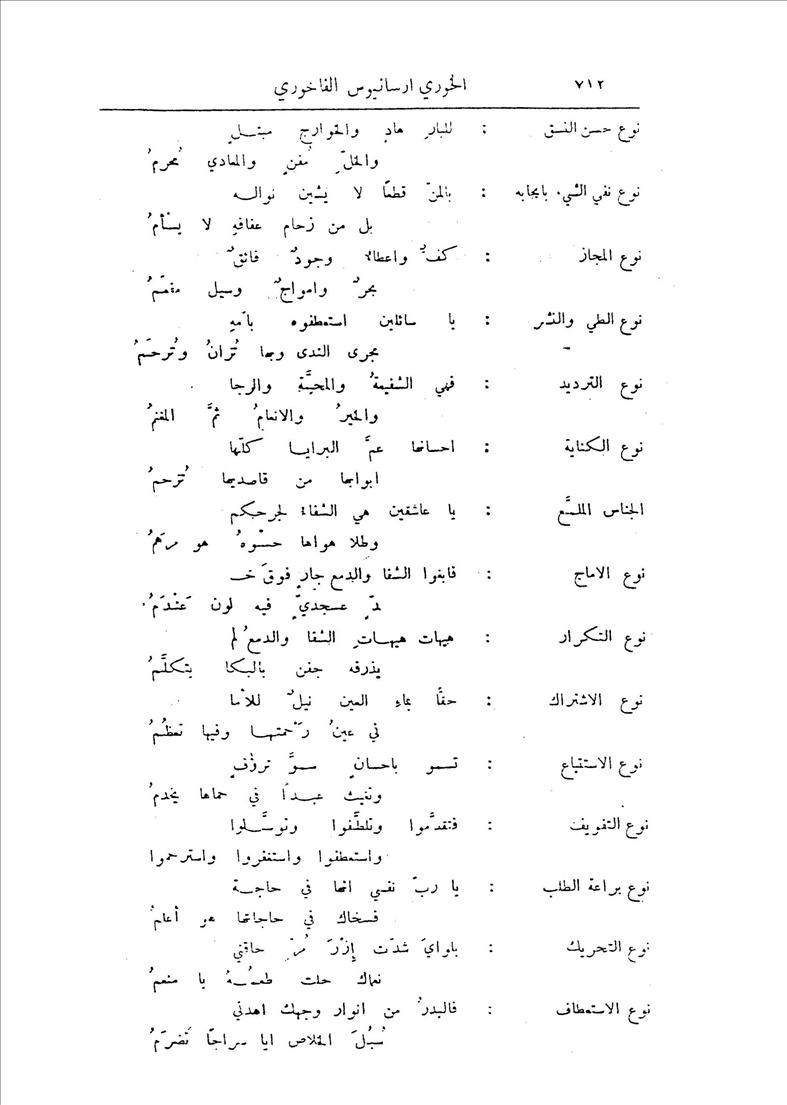 ٧١٢ الخوري ارسانيوس الفاخوري
نوع حسن النسق : للبارِ هادٍ والخوارج مبتلٍ
والخلّ مُفنٍ والمعادي مُحرمُ
نوع نفي الشيء بايجابه : بالمنّ قطعًا لا يشين نواله
بل من زحام عفافهِ لا يسأمُ
نوع المجاز : كفٌّ واعطاءٌ وجودٌ فائقٌ
بحرٌ وامواجٌ وسيل مفعمُ
نوع الطي والنشر : يا سائلين استعطفوه بأمّهِ
مجرى الندى وبها تُزانُ وتُرحَمُ
نوع الترديد : فهي الشفيعةُ والمحبَّةِ والرجا
والخيرُ والانعامُ ثمَّ المغنمُ
نوع الكناية : احسانها عمَّ البرايا كلّها
ابوابها من قاصديها تُرحمُ
الجناس الملمَّع : يا عاشقين هي الشفاءُ لجرحكم
وطلا هواها حسْوهُ هو مرهمُ
نوع الاماج : فابغوا الشفا والدمع جارٍ فوقَ خـ
ـدٍّ عسجديٍّ فيه لون عَنْدَمُ
نوع التكرار : هيهات هيهاتِ الشفا والدمعُ لم
يذرفه جفن بالبكا يتكلَّمُ
نوع الاشتراك : حقًّا بماءِ العين نيلٌ للأما
ني عينُ رَحمتها وفيها تعظُمُ
نوع الاستتباع : تسمو باحسانٍ سموَّ ترؤفٍ
وتغيث عبدًا في حماها يخدمُ
نوع التفويف : فتقدَّموا وتلطَّفوا وتوسَّلوا
واستعطفوا واستغفروا واسترحموا
نوع براعة الطلب : يا ربّ نفسي انها في حاجة
فسخاك في حاجاتها هو أعلمُ
نوع التحريك : بلوايَ شدّت إِزْرَ مُرّ حاقتي
نعماك حلت طعمُهُ يا منعمُ
نوع الاستعطاف : فالبدرُ من انوار وجهك اهدني
سُبُلَ الخلاص ايا سراجًا تَضرّمُ